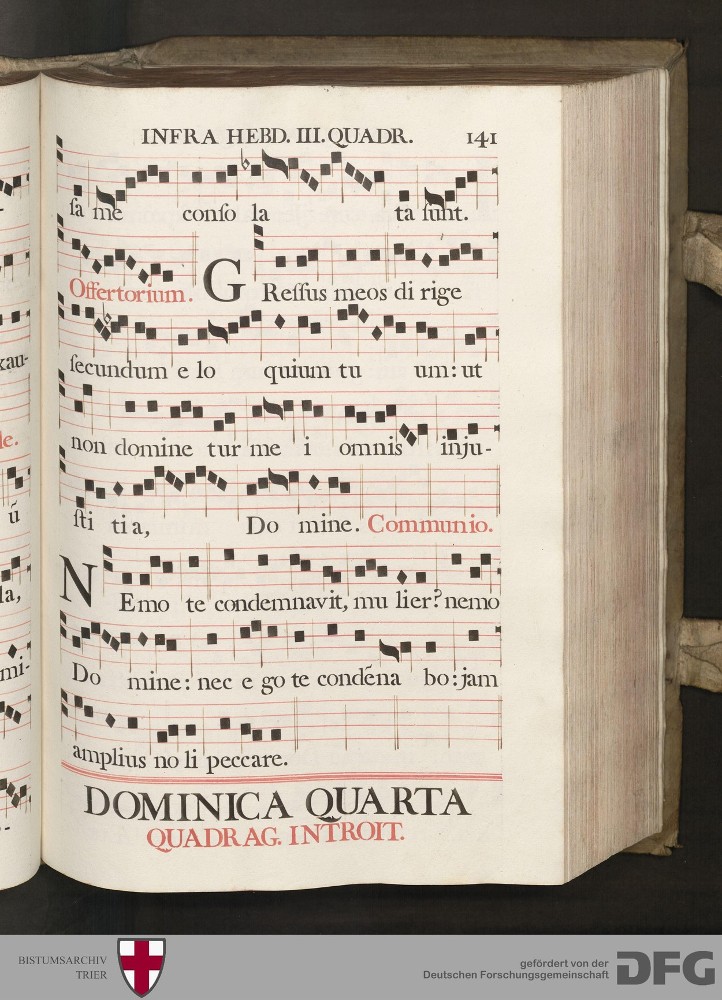 INFRA HEBD. III. QUADR. 141
ſa me conſo la ta ſunt.
Offertorium. GReſſus meos di rige
ſecundum e lo quium tu um: ut
non domine tur me i omnis inju-
ſti ti a, Do mine. Communio.
NEmo te condemnavit, mu lier? nemo
Do mine: nec e go te condēna bo: jam
amplius no li peccare.
DOMINICA QUARTA
QUADRAG. INTROIT.
xau-
le.
ū
la,
mi-
BISTUMSARCHIV
TRIER
gefördert von der
Deutschen Forschungsgemeinschaft
DFG